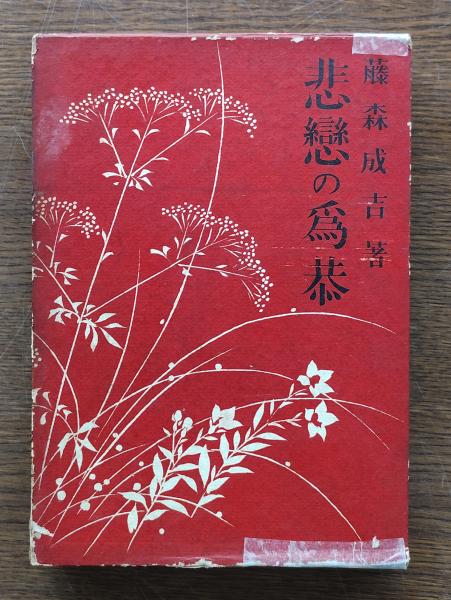 藤森成吉著
悲戀の爲恭